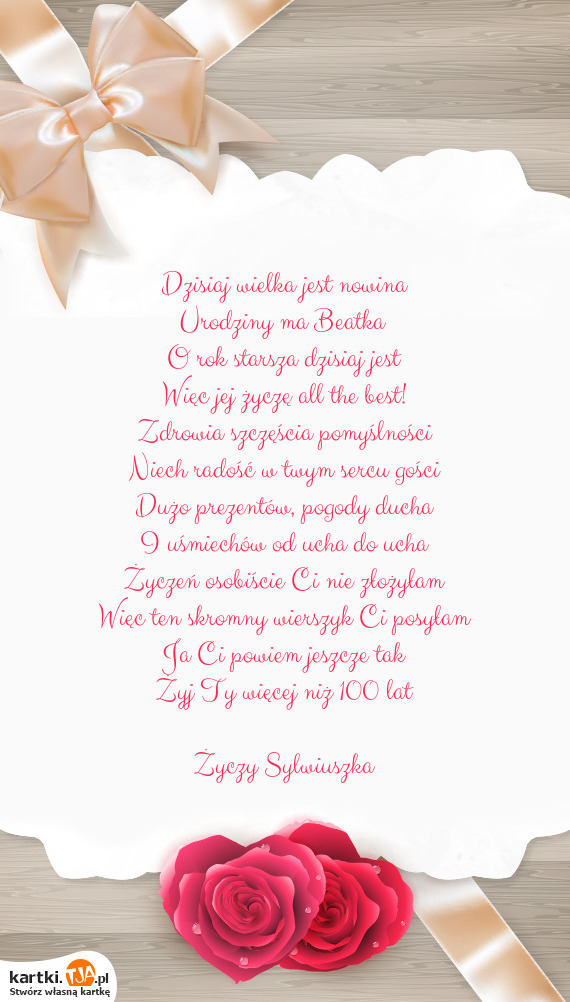 Dzisiaj wielka jest nowina
Urodziny ma Beatka
O rok starsza dzisiaj jest
Więc jej życzę all the best!
Zdrowia szczęścia pomyślności
Niech radość w twym sercu gości
Dużo prezentów, pogody ducha
I uśmiechów od ucha do ucha
Życzeń osobiście Ci nie złożyłam
Więc ten skromny wierszyk Ci posyłam
Ja Ci powiem jeszcze tak
Żyj Ty więcej niż 100 lat
Życzy Sylwiuszka
kartki.TJA.pl
Stwórz własną kartkę